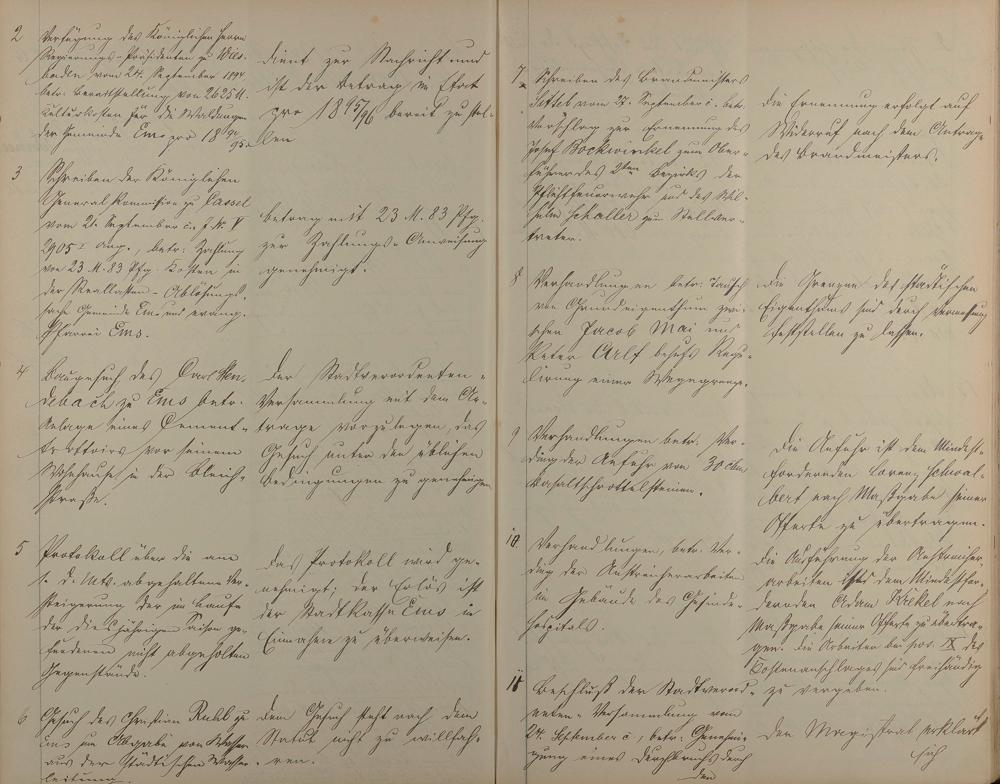 2 Verfügung des Königlichen Herrn
Regierungs-Präsidenten zu Wies-
baden vom 24. September 1894
betr: Bereitstellung von 2625 M.
Culturkosten für die Waldungen
der Gemeinde Ems pro 18 94/95.
dient zur Nachricht und
ist der Betrag im Etat
pro 1895/96 bereit zu stel-
len
3 Schreiben der Königlichen
General Kommission zu Cassel
vom 21. September c. J. Nr. V
2905 I ang., betr: Zahlung
von 23 M. 83 Pfg. Kosten in
der Reallasten-Ablösungs-
sache Gemeinde Ems und evang.
Pfarrei Ems.
Betrag mit 23 M. 83 Pfg.
zur Zahlungs-Anweisung
genehmigt.
4 Baugesuch des Carl Hen-
debach zu Ems betr.
Anlage eines Cement-
trottoirs vor seinem
Wohnhause in der Bleich-
straße.
Der Stadtverordneten-
Versammlung mit dem An-
trage vorzulegen, das
Gesuch unter den üblichen
Bedingungen zu genehmigen
5 Protokoll über die am
1. d. Mts. abgehaltene Ver-
steigerung der im Laufe
der diesjährigen Saison ge-
fundenen nicht abgeholten
Gegenstände.
das Protokoll wird ge-
nehmigt; der Erlös ist
der Stadtkasse Ems in
Einnahme zu überweisen.
6 Gesuch des Christian Rubl zu
Ems um Abgabe von Wasser
aus der Städtischen Wasser-
leitung
dem Gesuch steht nach dem
Statut nicht zu willfah-
ren.
7 Schreiben des Brandmeisters
vom 27. September c. betr.
Vorschlag zur Ernennung des
Josef Bockwinkel zum Ober-
führer des 2ten Bezirks der
Pflichtfeuerwehr und des Wil-
helm Schaller zu Stellver-
treter.
die Ernennung erfolgt auf
Widerruf nach dem Antrage
des Brandmeisters.
8 Verhandlungen betr: Tausch
von Grundeigenthum zwi-
schen Jacob Mai und
Peter Alf behufs Regu-
lirung einer Wegegrenze.
die Grenzen des städtischen
Eigenthums sind durch Vermessung
feststellen zu lassen.
9 Verhandlungen betr: Ver-
dingung der Anfuhr von 30 cbm
Basaltschrottelsteinen.
die Anfuhr ist dem Mindest-
fordernden Lorenz Schwal-
bert nach Maßgabe seiner
Offerte zu übertragen.
10 Verhandlungen, betr: Ver-
ding der Anstreicherarbeiten
im Gebäude des Gesinde-
hospitals.
die Ausführung der Anstreicher-
arbeiten ist dem Mindestfor-
dernden Adam Krekel nach
Maßgabe seiner Offerte zu übertra-
gen. die Arbeiten bei pos. IX des
Kostenanschlages sind freihändig
zu vergeben.
11 Beschluß der Stadtverord-
neten-Versammlung vom
24. September c., betr: Genehmi-
gung eines Durchbruchs durch
den
der Magistrat erklärt
sich